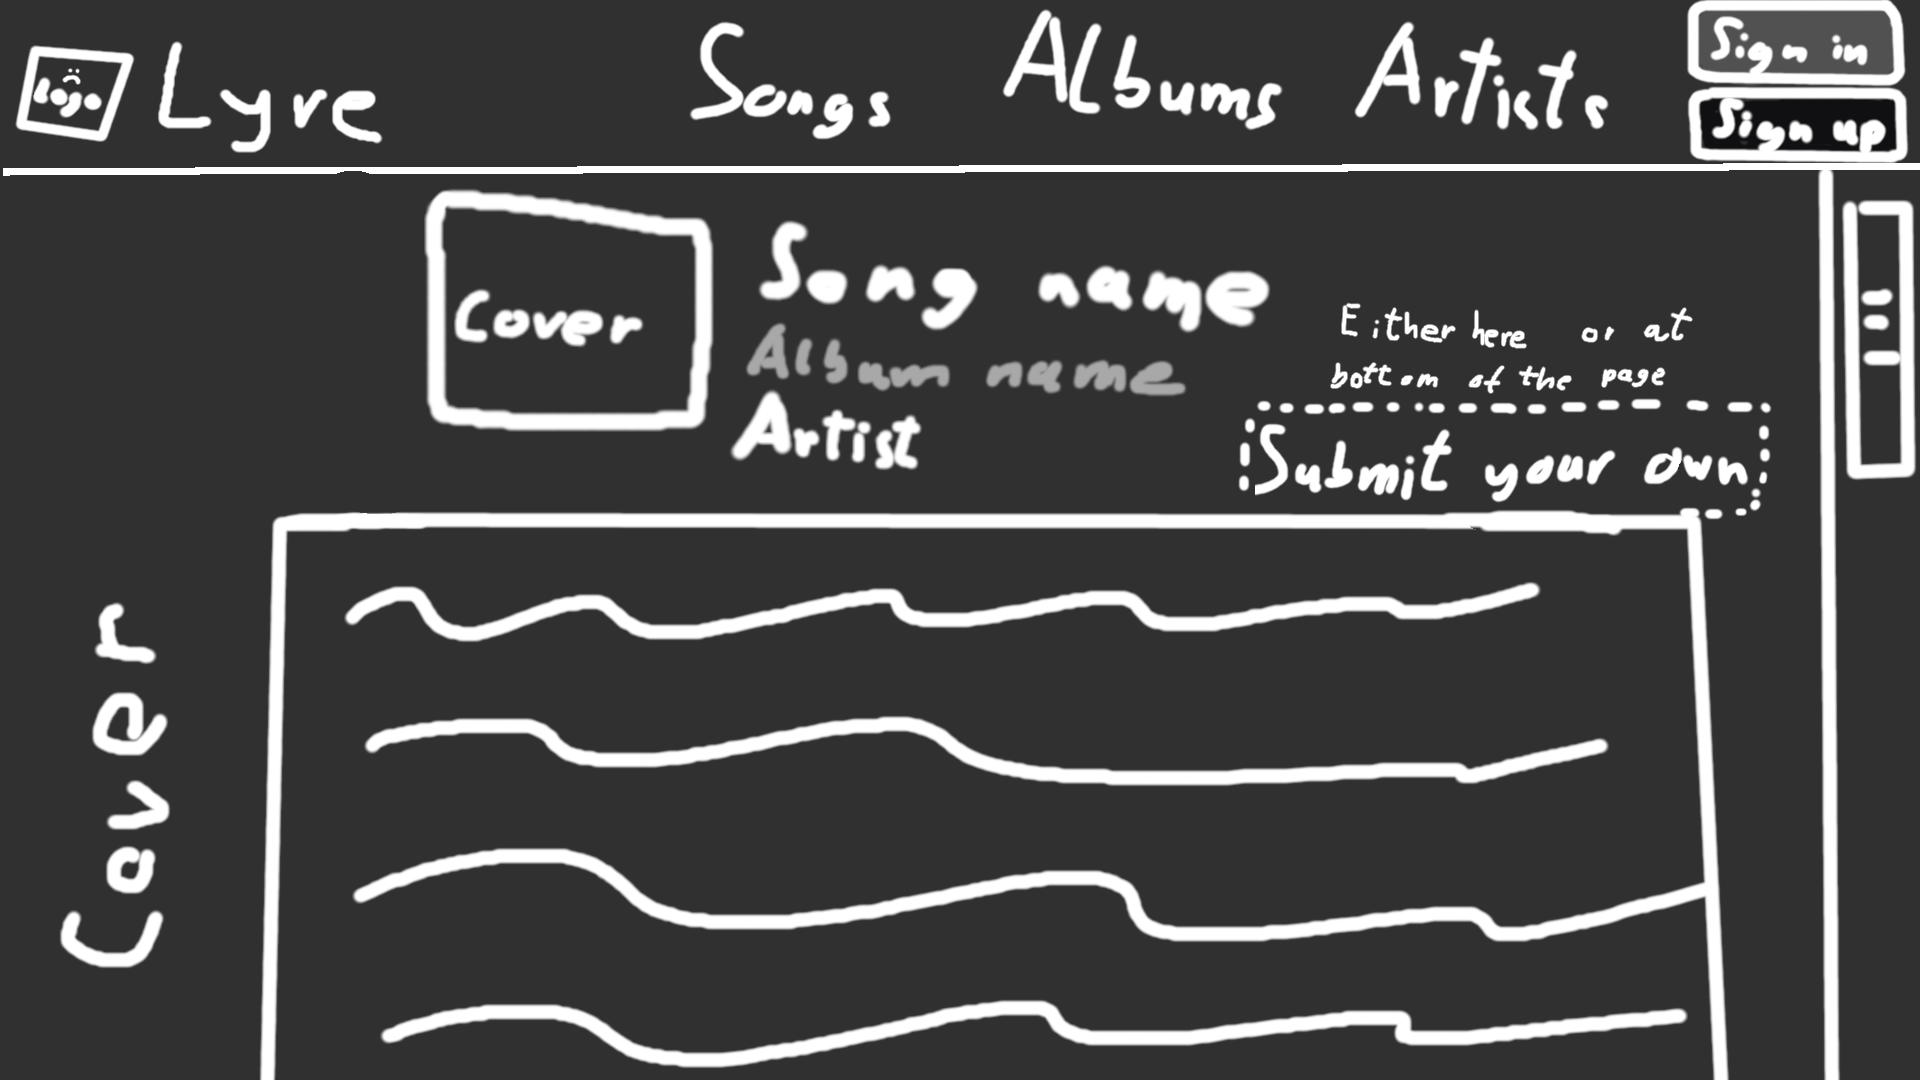 Logo
Lyre
Songs
Albums
Artists
Sign in
Sign up
Cover
Song name
Album name
Artist
Either here or at
bottom of the page
Submit your own
Cover